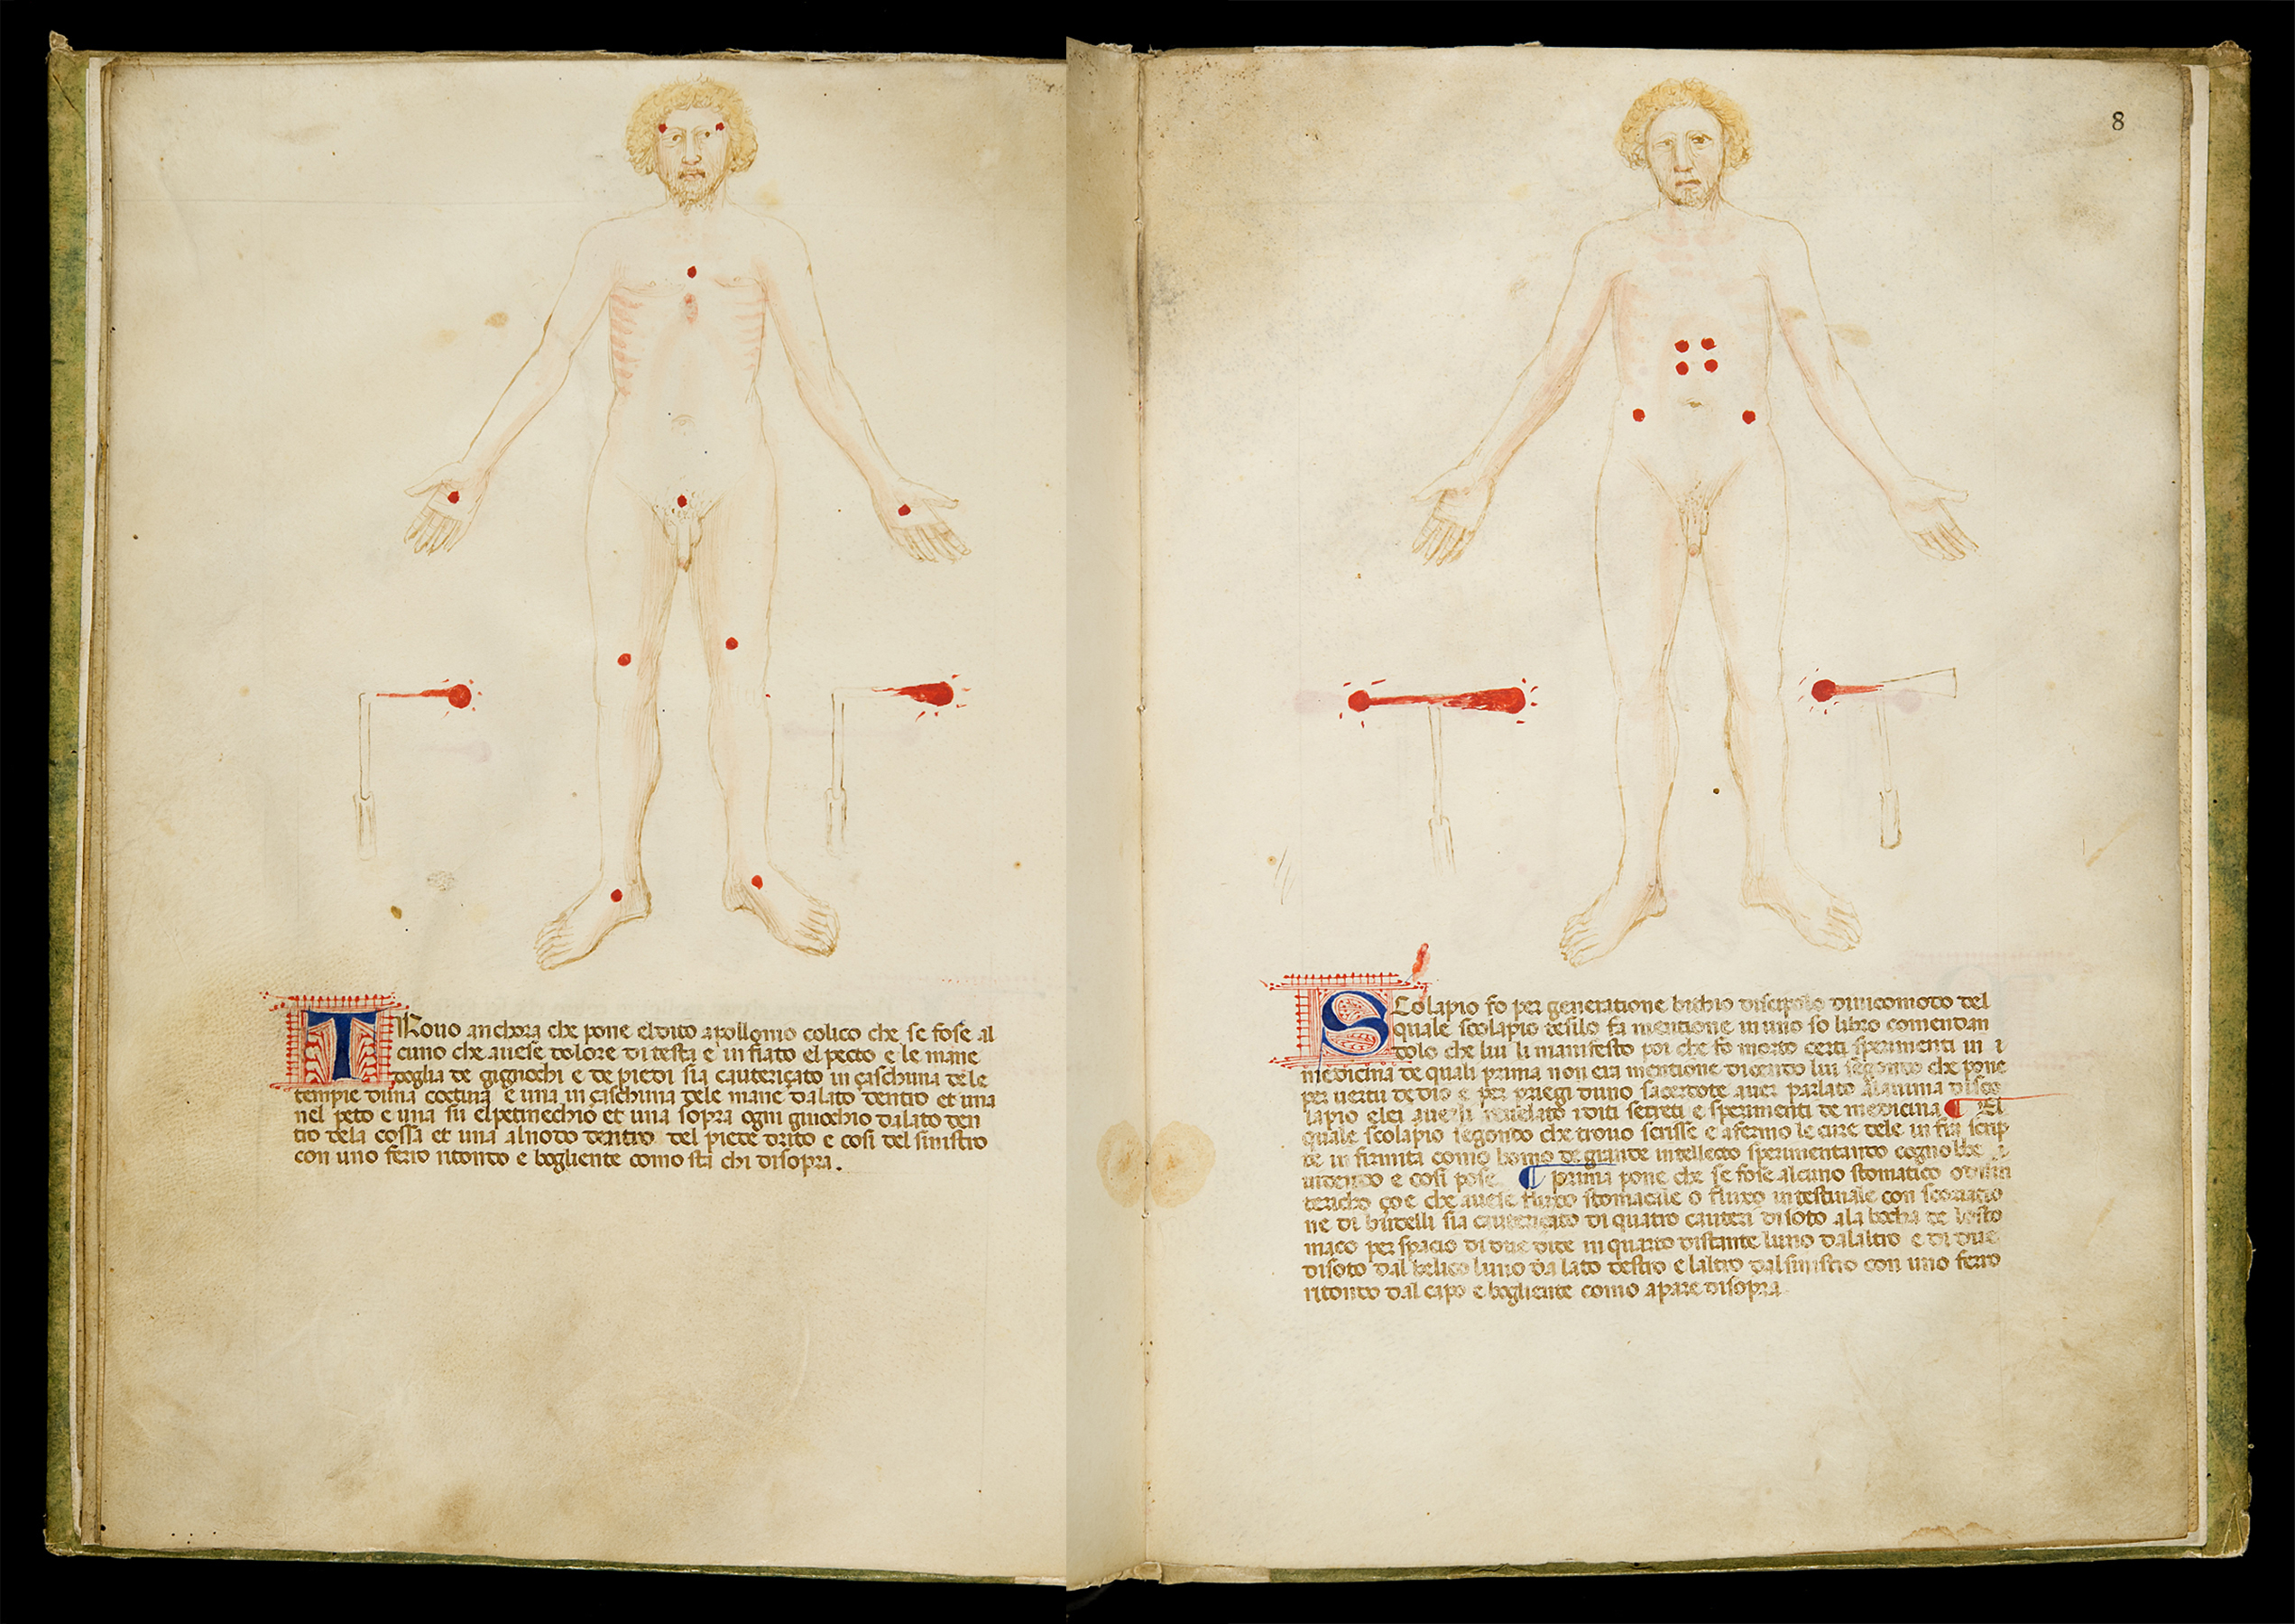 TRouo anchora che pone el dito apollonio colico che se fose al
cuno che auese dolore di testa e in fiato el pecto e le mane
doglia de gignochi e de piedi sia cauteriçato in çaschuna dele
tempie duna coctura e una in çaschuna dele mane dalato dentro et una
nel peto e una su el petinechio et una sopra ogni ginochio dalato den
tro dela cossa et una al nodo dentro del piede drito e cosi del sinistro
con uno ferro ritondo e bogliente como sta chi disopra.
8
SColapio fo per generatione discipolo del
quale scolapio desilo fa mentione in uno so libro comendan
dolo che lui li manifesto poi che fo morto certi sperimenti in
medicina de quali prima non era mentione dicendo lui segondo che pone
per uertu de dio e per priegi duno sacerdote auer parlato alanima
lapio e lei auerli reuelato i diti secreti e sperimenti de medicina ¶ El
quale scolapio segondo che trouo scrisse e afermo le cure dele in fra scrip
te in firmita como homo de grande intellecto sperimentando cognobbe
e cosi pose ¶ prima pone che se fose alcuno stomatico
çoe che auese fluxo stomacale o fluxo intestinale con scoriatio
ne di budelli sia cauteriçato di quatro cauteri disoto ala bocha de lo sto
maco per spacio di due dite in quatro distante luno dalaltro e di due
disoto dal belico luno da lato destro e laltro dal sinistro con uno ferro
ritondo dal capo e bogliente como apare disopra